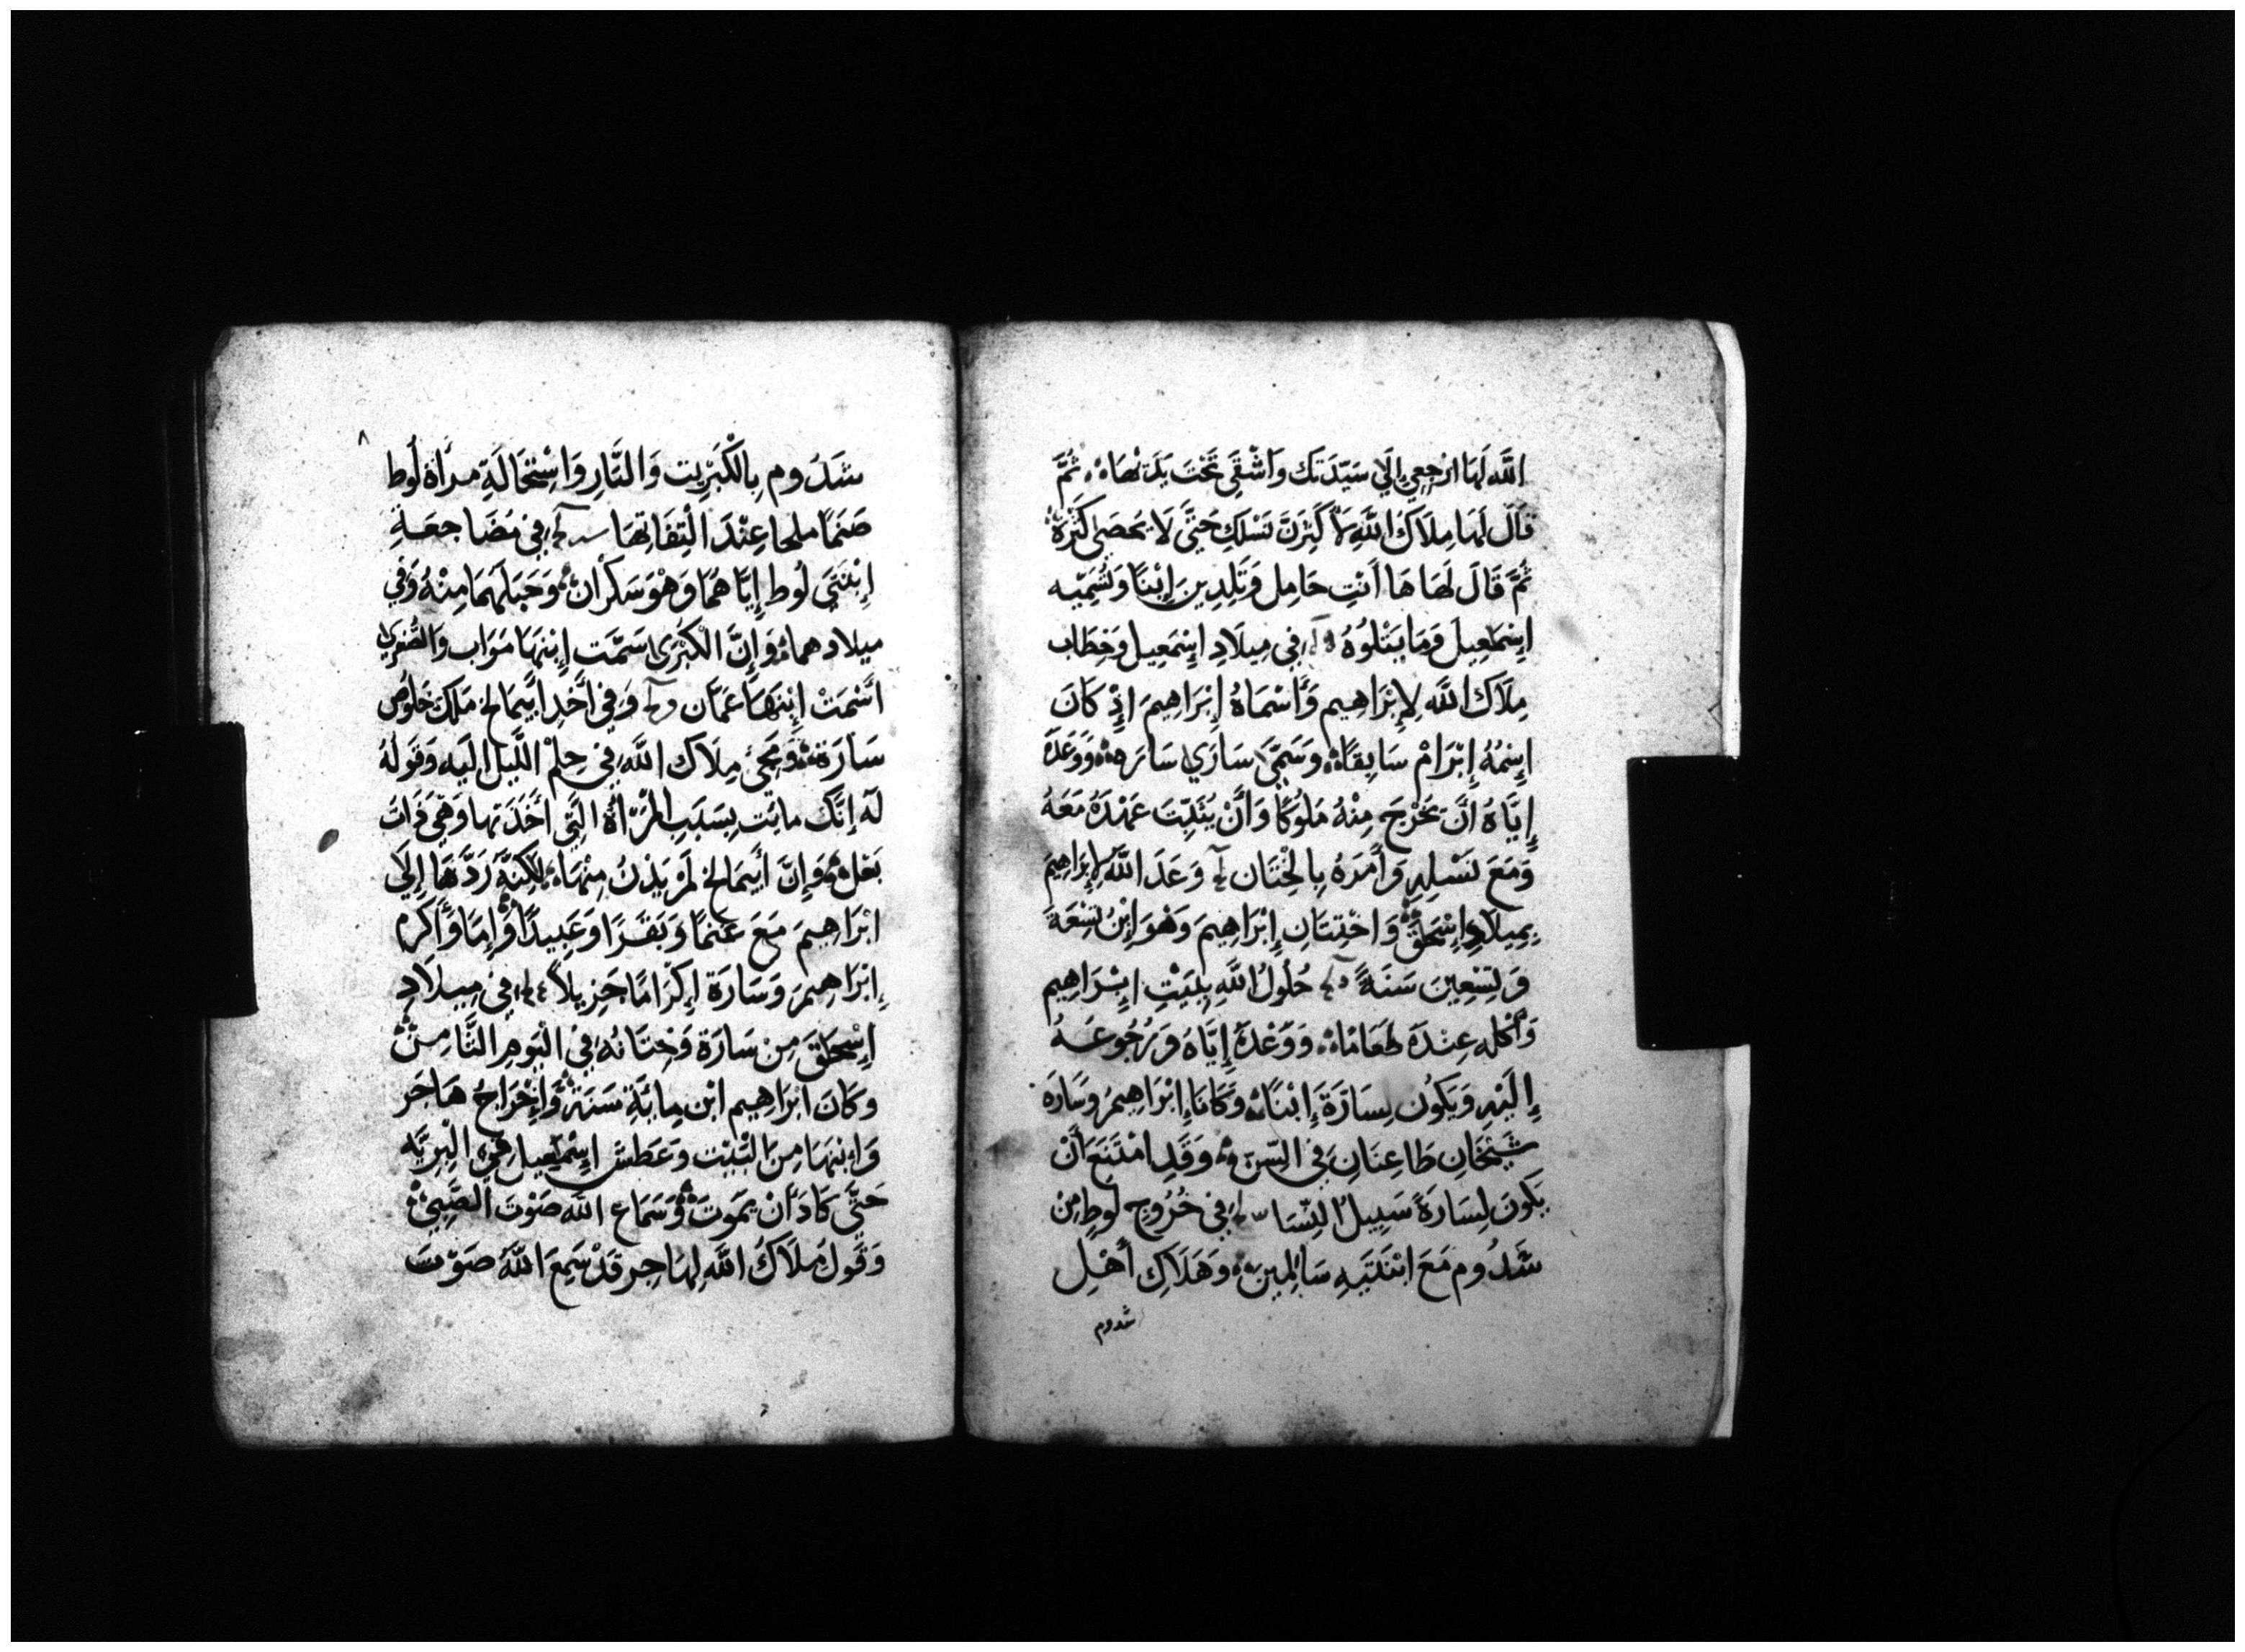 اللَّه لَهَا ارْجِعِي إِلَي سَيِّدَتَك وَاشْقَي تَحْتَ يَدَتْهَا ثُمَّ
قَالَ لَهَا مِلَاكُ اللَّهِ لَأُ كَثِّرَنَّ نَسْلَكِ حَتَّى لَا يُحصَى كَثْرَةً
ثُمَّ قَالَ لَهَا هَا أَنْتِ حَامِل وَتَلِدِينَ إِبْنًا وَتُسَمِّيه
إِسْمَعِيلَ وَمَا يَتْلُوهُ فِي مِيلَادِ إِسْمَعِيل وَخِطَاب
مِلَاك اللَّه لِإِبْرَاهِيم وَأَسْمَاهُ إِبْرَاهِيمَ إِذْ كَانَ
إِسْمُهُ إِبْرَامْ سَابِقًا وَسَمَّى سَارَي سَارَه وَوَعَدَهُ
إِيَّاهُ أَنَّ يَخْرُجَ مِنْهُ مَلُوكًا وَأَنْ يُثَبِّتَ عَهْدَهُ مَعَهُ
وَمَعَ نَسْلِهِ وَأَمَرَهُ بِالْخِتَان وَعَدَ اللَّهَ لِإِبْرَاهِيمَ
بِمِيلَادِ إِسْحَقْ وَاخْتِتَانِ إِبْرَاهِيمَ وَهْوَ إِبْنُ تِسْعَةً
وَتِسْعِينَ سَنَةً حُلُولُ اللَّهِ بِبَيْتِ إِبْرَاهِيم
وَأَكْله عِنْدَهُ طَعَامًا وَوَعْدَهُ إِيَّاهُ وَرُجُوعَهُ
إِلَيْهِ وَيَكُون لِسَارَةَ إِبْنًا وَكَانَا إِبْرَاهِيمُ وَسَارَه
شَيْخَانِ طَاعِنَانِ فِي السِّنّ وَقَدِ امْتَنَعَ أَنْ
يَكُونَ لِسَارَةً سَبِيلُ النِّسَا فِي خُرُوجِ لُوطٍ مِنْ
سَدُوم مَعَ ابْنَتَيهِ سَالِمِينَ وَهَلَاكِ أَهْلِ
سدوم
٨
سَدُوم بِالْكَبْرِيت وَالنَّارِ وَاسْتِحَالَةِ مرَأَة لُوط
صَنَمًا ملحا عِنْدَ الْتِفَاتِهَا فِي مُضَاجعَةِ
إِبْنَتَي لُوط إِيَّاهُمَا وَهْوَ سَكرَان وَحَبَلَهُمَا مِنْهُ وَفِي
ميلادهما وَإِنَّ الْكُبْرَى سَمَّت إِبْنَهَا مَوَاب وَالصُّغرَي
أَسْمَتْ إِبْنَهَا عَمَّان وَفِي أَخْدِ أَبِيمَالخ مَلِك خَلُوص
سَارَة وَمَجِئ مِلَاك اللَّهِ فِي حِلْمِ اللَّيل الَيه وَقَولهُ
لَهَ إِنَّك مائِت بِسَبَبِ الْمَرْأَةُ الَّتِي أَخَذَتها وَهْيَ ذَات
بَعل وَإِنَّ أَبِيمَالخ لَمْ يَدْنُ مِنْهَا لَكِنَّهُ رَدَّهَا إِلَي
ابْرَاهِيمَ مَعَ غَنَمًا وَبَقَرًا وَعَبِيدًا وَإِمَا وَأَكْرَم
إِبْرَاهِيمَ وَسَارَة إِكْرَامًا جَزِيلاً فِي مِيلَادِ
إِسْحَقَ مِن سَارَة وَخِتَانُه فِي الْيَومِ الثَّامِنْ
وَكَانَ ابْرَاهِيم ابْن مِايَةِ سَنَة وَإِخْرَاجُ هَاجَر
وَابْنهَا مِنَ الْبَيْت وَعَطش إِسْمَعِيل فِي الْبِريَّه
حَتَّي كَادَ أَن يَمُوتَ وَسَمَاع اللَّه صَوْتَ الصَّبِيْ
وَقَولُ مَلَاكُ اللَّهِ لِهَاجر قَدْ سَمِعَ اللَّهُ صَوْتَ